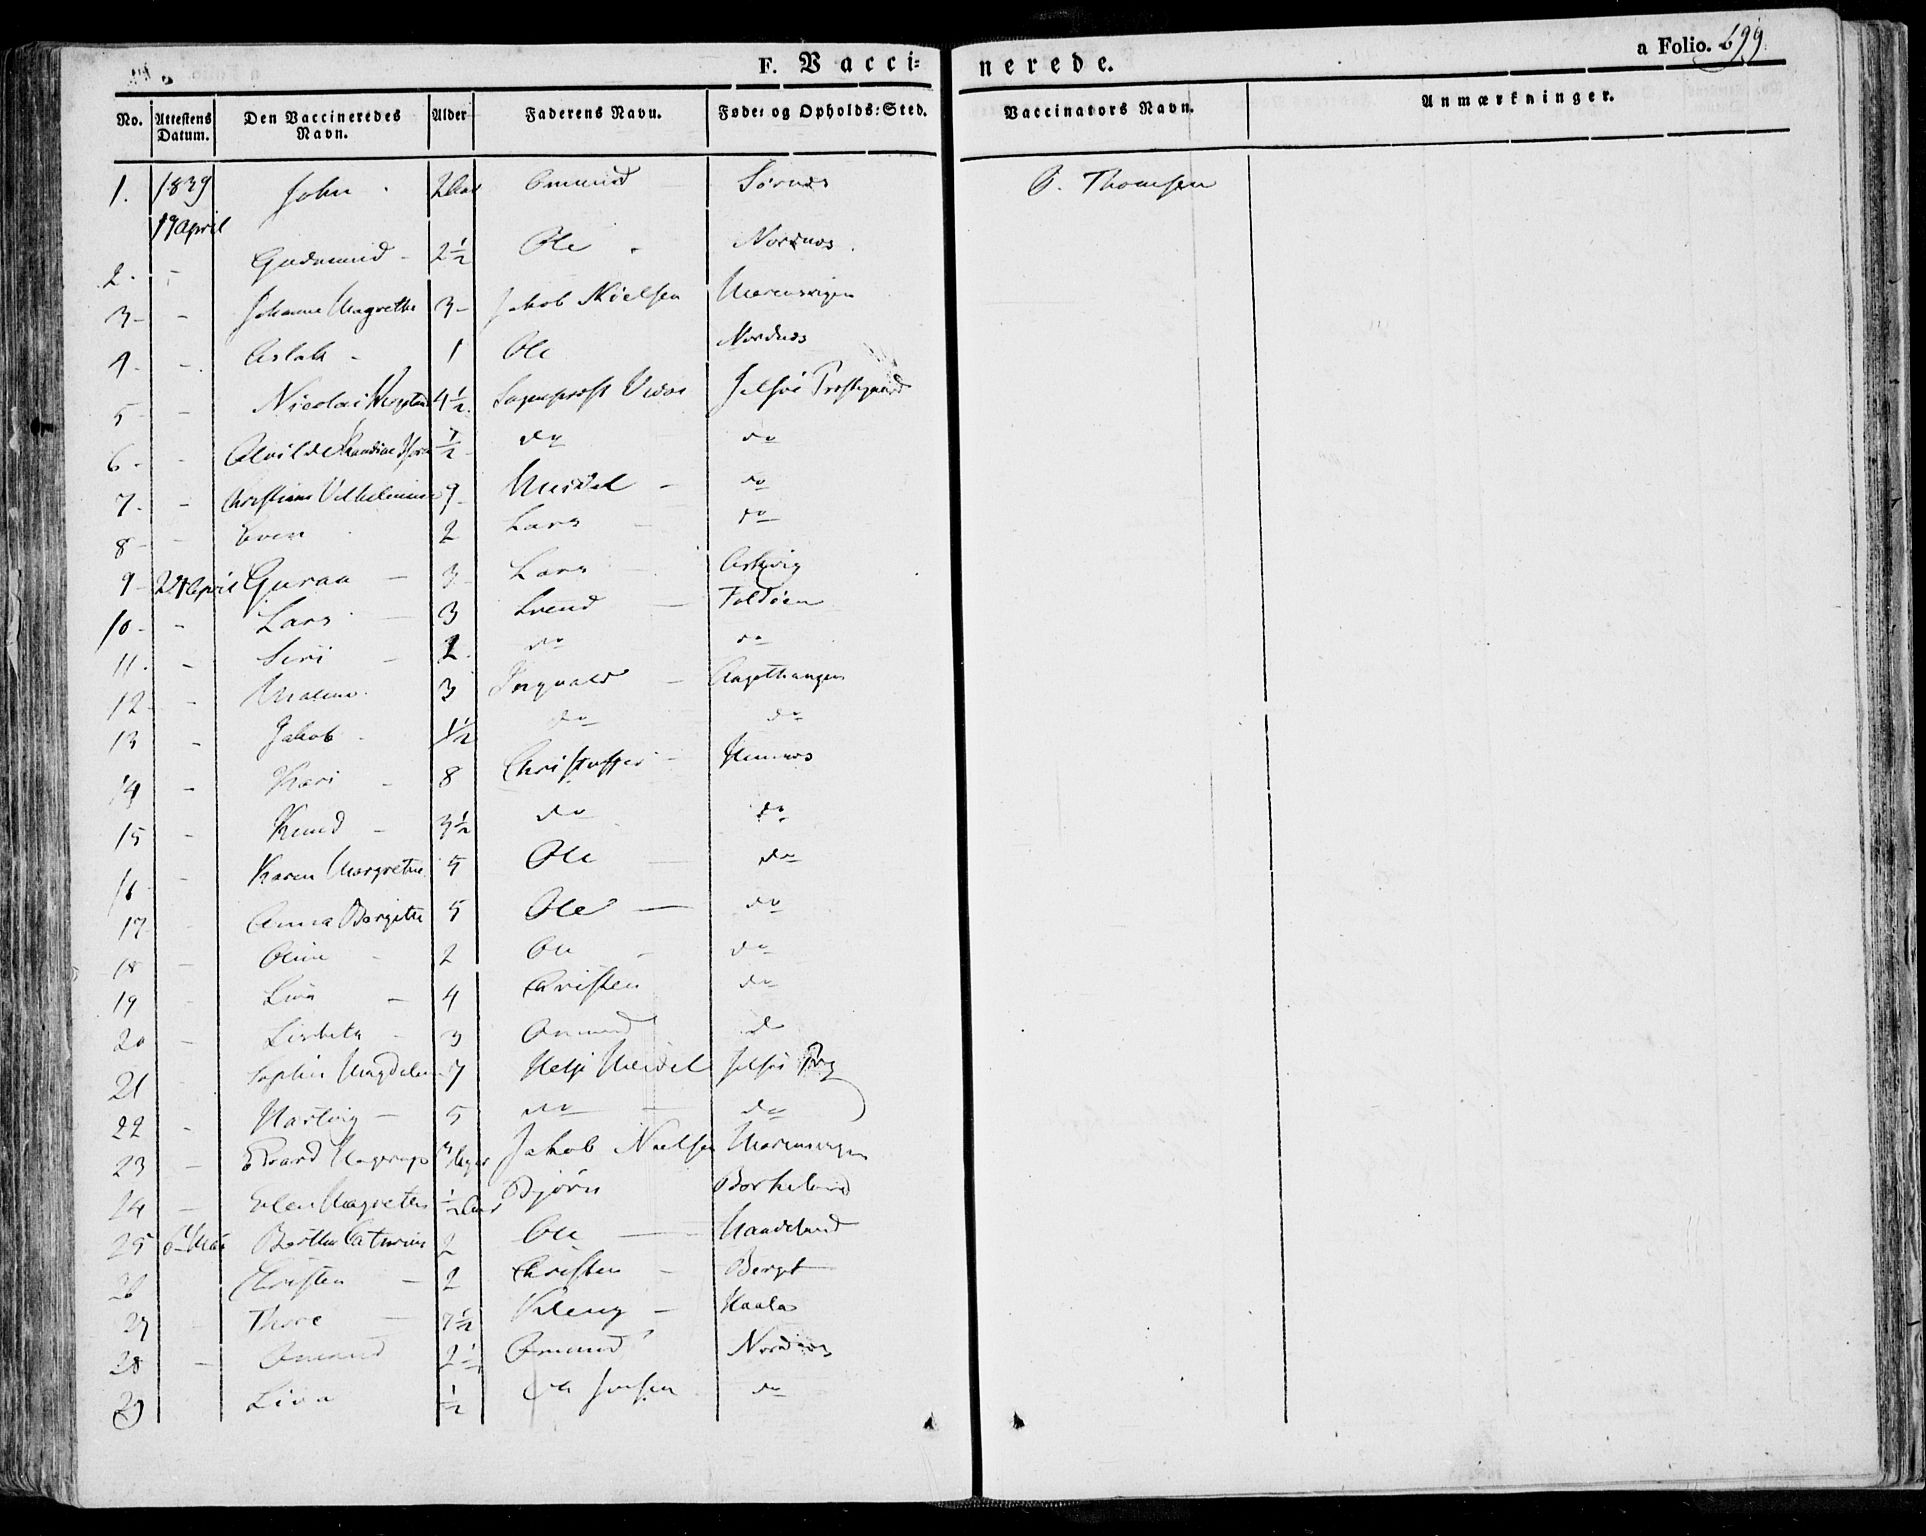 F. Vaccinerede.
a Folio. 699.
No. Attestens Datum. Den Vaccineredes Navn. Alder Faderens Navn. Føde- og Opholds-Sted. Vaccinators Navn. Anmærkninger.
1. 1839 19 April John 2 Aar Omund Sørnes P. Thomsen
2. - Gudmund - 2½ Ole Nordnes
3 - - Johanne Magrethe 3 - Jakob Nielsen Marensvigen
4. - Aslak - 1 Ole Nordnes
5 - Nicolai 4½ Sogneprest Jelsøe Prestegaard
6 - - Alvilde ½ do do
7. - Christiane Vilhelmine 9 - Meidel - do
8 - - Even 2 Lars - do
9 - 24 April Guraa - 3 - Lars - Askvig
10. - Lars - 3 Svend - Foldøen
11. - Siri - 2 do do
12 - Malene 3 Ingvald -
13 - Jakob 1½ do do
14 - Kari - 8 Christoffer -
15 - Knud - 3½ do do
16 - Karen Margrethe 5 Ole - do
17 - Anna Bergitte 5 Ole - do
18 - Oline - 2 Ole - do
19 Liva - 4 Christen do
20 - Lisbeth - 3 Omund do
21 Sophie Magdelene 7 Helje Meidel Jelsøe Prg
22 - Hartvig - 5 do - do
23 - Edvard Hagerup Jakob Nielsen Marensvigen
24 - Elen Magrethe ½ Aar Bjørn Borkeland
25 6 Mai Berthe Cathrine 2 Ole - Haadeland
26 Christen - 2 Christen - Berget
27 - Thore - 7½ Kleng - Haalas
28 - Omund 2½ Omund Nordnes
29 Liva ½ Ole Jonsen do